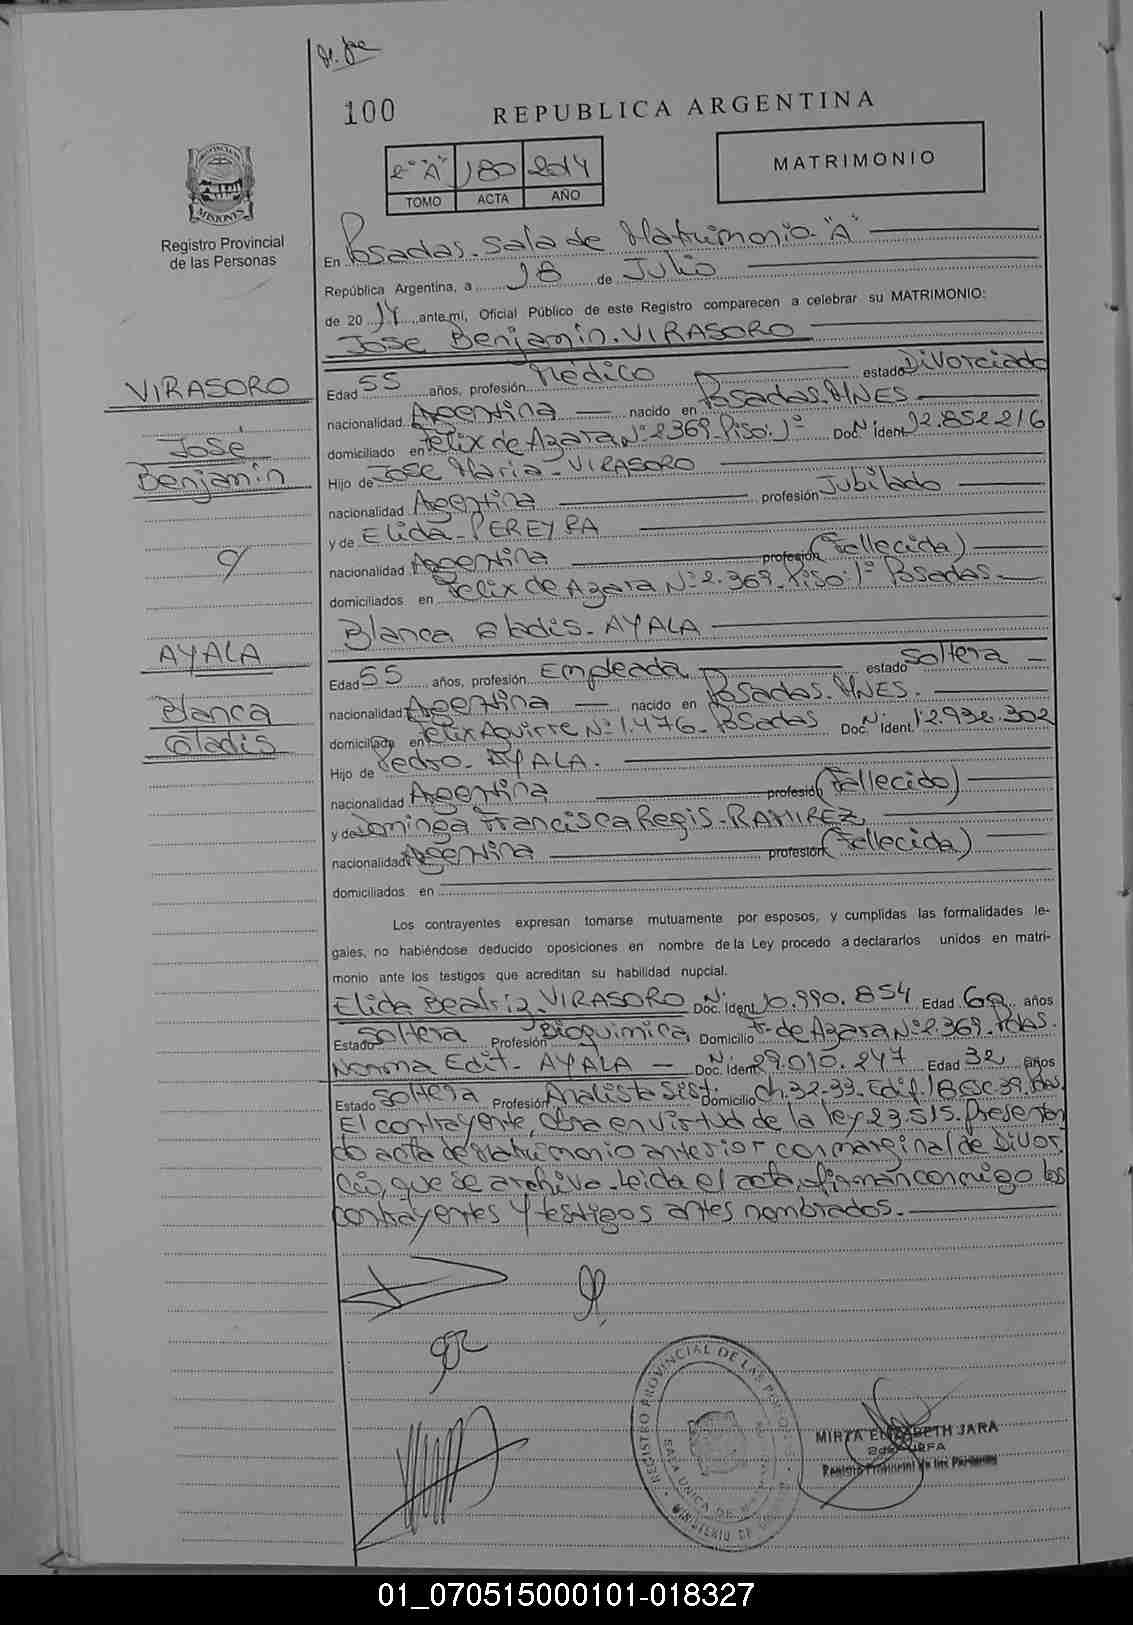 100
REPUBLICA ARGENTINA
2º "A" 180 2014
TOMO ACTA AÑO
MATRIMONIO
PROVINCIA DE MISIONES
Registro Provincial
de las Personas
En Posadas. Sala de Matrimonio. "A"
República Argentina, a 18 de Julio
de 20 14 ante mí, Oficial Público de este Registro comparecen a celebrar su MATRIMONIO:
Jose Benjamin. VIRASORO
VIRASORO
José
Benjamin
y
AYALA
Blanca
Gladis
Edad 55 años, profesión Médico estado Divorciado
nacionalidad Argentina nacido en Posadas. MNES
domiciliado en Felix de Azara Nº 2369. Piso. 1º Doc. Nº Ident. 12.852.216
Hijo de Jose Maria - VIRASORO
nacionalidad Argentina profesión Jubilado
y de Elida - PEREYRA
nacionalidad Argentina profesión (Fallecida)
domiciliados en Felix de Azara Nº 2.369. Piso: 1º Posadas.
Blanca Gladis - AYALA
Edad 55 años, profesión Empleada estado Soltera
nacionalidad Argentina nacido en Posadas. MNES.
domiciliado en Felix Aguirre Nº 1.476. Posadas Doc. Nº Ident. 12.932.302
Hijo de Pedro - AYALA.
nacionalidad Argentina profesión (Fallecido)
y de Dominga Francisca Regis - RAMIREZ
nacionalidad Argentina profesión (Fallecida)
domiciliados en
Los contrayentes expresan tomarse mutuamente por esposos, y cumplidas las formalidades le-
gales, no habiéndose deducido oposiciones en nombre de la Ley procedo a declararlos unidos en matri-
monio ante los testigos que acreditan su habilidad nupcial.
Elida Beatriz. VIRASORO Doc. Nº Ident. 10.990.854 Edad 60 años
Estado Soltera Profesión Bioquimica Domicilio F. de Azara Nº 2369. Pdas.
Norma Edit - AYALA Doc. Nº Ident. 29.010.247 Edad 32 años
Estado Soltera Profesión Analista Sist. Domicilio Ch. 32-33. Edif. 1 BESC. 39. Pdas
El contrayente, obra en virtud de la ley 23.515. Presentan
do acta de Matrimonio anterior con marginal de Divor
cio, que se archiva. Leida el acta, firman conmigo los
contrayentes y testigos antes nombrados.
REGISTRO PROVINCIAL DE LAS PERSONAS
SALA UNICA DE
MINISTERIO DE
MIRTA ELIZABETH JARA
2da JEFA
Registro Provincial de las Personas
01_070515000101-018327